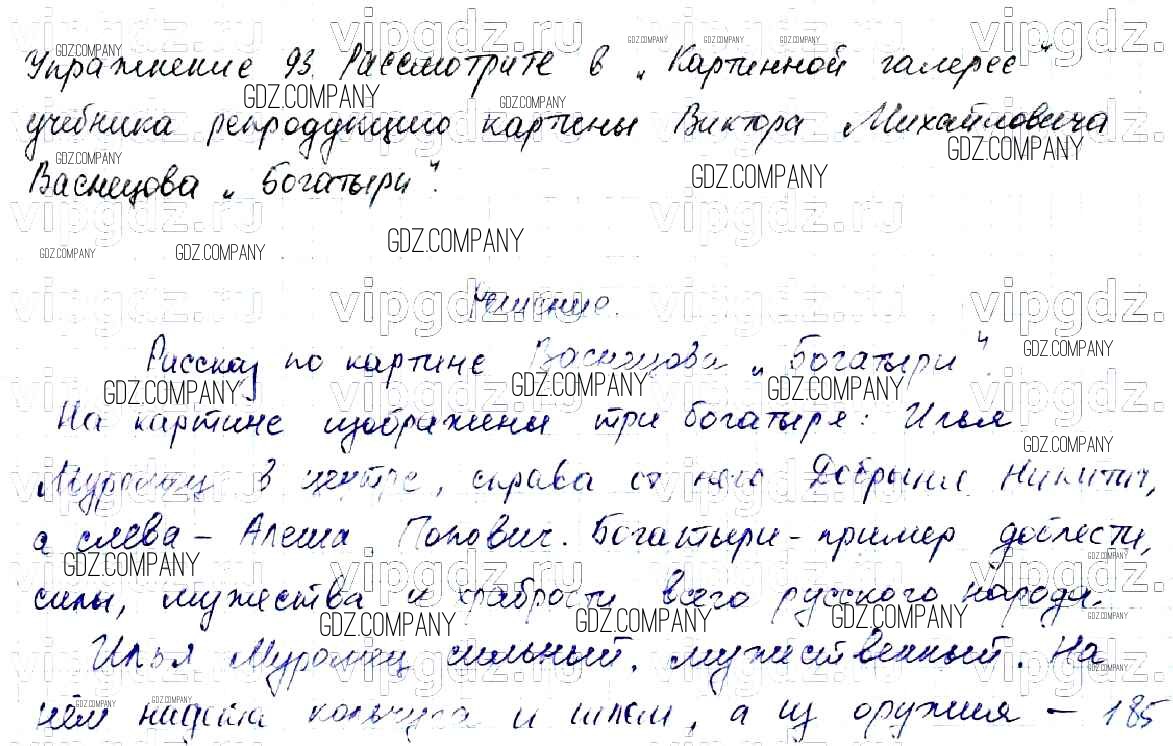 Упражнение 93. Рассмотрите в „Картинной галерее"
учебника репродукцию картины Виктора Михайловича
Васнецова „Богатыри".
Решение.
Рассказ по картине Васнецова „Богатыри".
На картине изображены три богатыря: Илья
Муромец в центре, справа от него Добрыня Никитич,
а слева – Алеша Попович. Богатыри – пример доблести,
силы, мужества и храбрости всего русского народа.
Илья Муромец сильный, мужественный. На
нём надета кольчуга и шлем, а из оружия – 185
vipgdz.ru
GDZ.COMPANY